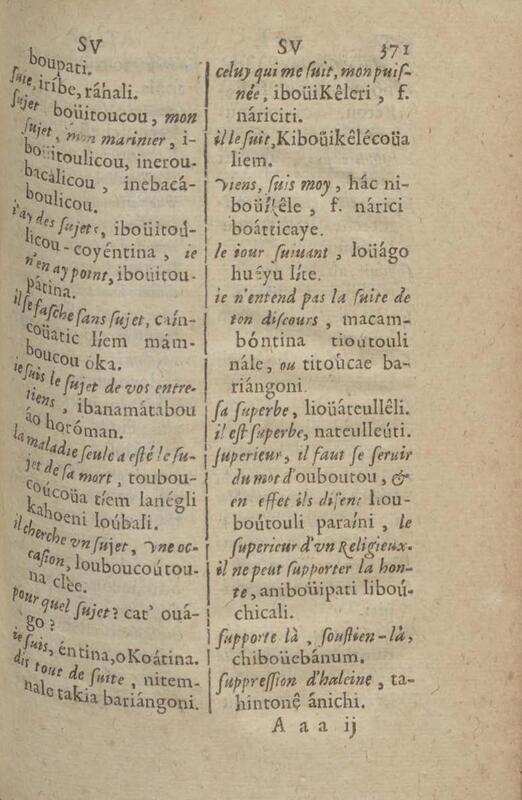 SV
boupati.
suite, iríbe, ráhali.
sujet boüitoucou, mon
sujet, mon marinier, i-
boüitoulicou, inerou-
bacálicou, inebacá-
boulicou.
i'ay des sujets, iboüitoú-
licou-coyéntina, ie
n'en ay point, iboüitou-
pátina.
il se fasche sans sujet, caín-
coüatic líem mám-
boucou oka.
ie suis le sujet de vos entre-
tiens, ibanamátabou
áo horóman.
la maladie seule a esté le su-
jet de sa mort, toubou-
coúcoüa tíem lanégli
kahoeni loúbali.
il cherche vn sujet, vne oc-
casion, louboucoútou-
na clée.
pour quel sujet? cat' ouá-
go?
ie suis, éntina, o Koátina.
dis tout de suite, nitem-
nale takia bariángoni.
SV 371
celuy qui me suit, mon puis-
née, iboüiKêleri, f.
náriciti.
il le suit, Kiboüikêlécoüa
liem.
viens, suis moy, hác ni-
boüikêle, f. nárici
boátticaye.
le iour suiuant, loüágo
huéyu líte.
ie n'entend pas la suite de
ton discours, macam-
bóntina tioutouli
nále, ou titoúcae ba-
riángoni.
sa superbe, lioüáteullêli.
il est superbe, nateulleúti.
superieur, il faut se seruir
du mot d'ouboutou, &
en effet ils disent liou-
boútouli paraíni, le
superieur d'vn Religieux.
il ne peut supporter la hon-
te, aniboüipati liboú-
chicali.
supporte là, soustien-là,
chiboüebánum.
suppression d'haleine, ta-
hintonê ánichi.
A a a ij